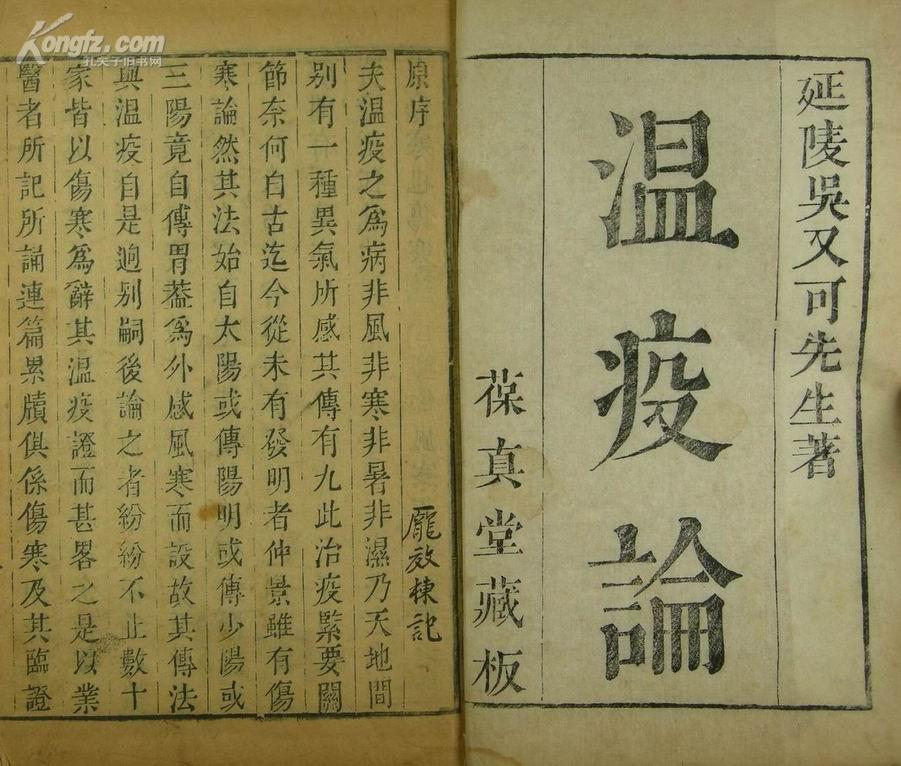 延陵吳又可先生著
温疫論
葆真堂藏板
原序
龐效棟記
夫温疫之爲病非風非寒非暑非濕乃天地間
别有一種異氣所感其傳有九此治疫緊要關
節奈何自古迄今從未有發明者仲景雖有傷
寒論然其法始自太陽或傳陽明或傳少陽或
三陽竟自傳胃葢爲外感風寒而設故其傳法
與温疫自是逈别嗣後論之者紛紛不止數十
家皆以傷寒爲辭其温疫證而甚畧之是以業
醫者所記所誦連篇累牘俱係傷寒及其臨證
Kongfz.com
孔夫子旧书网